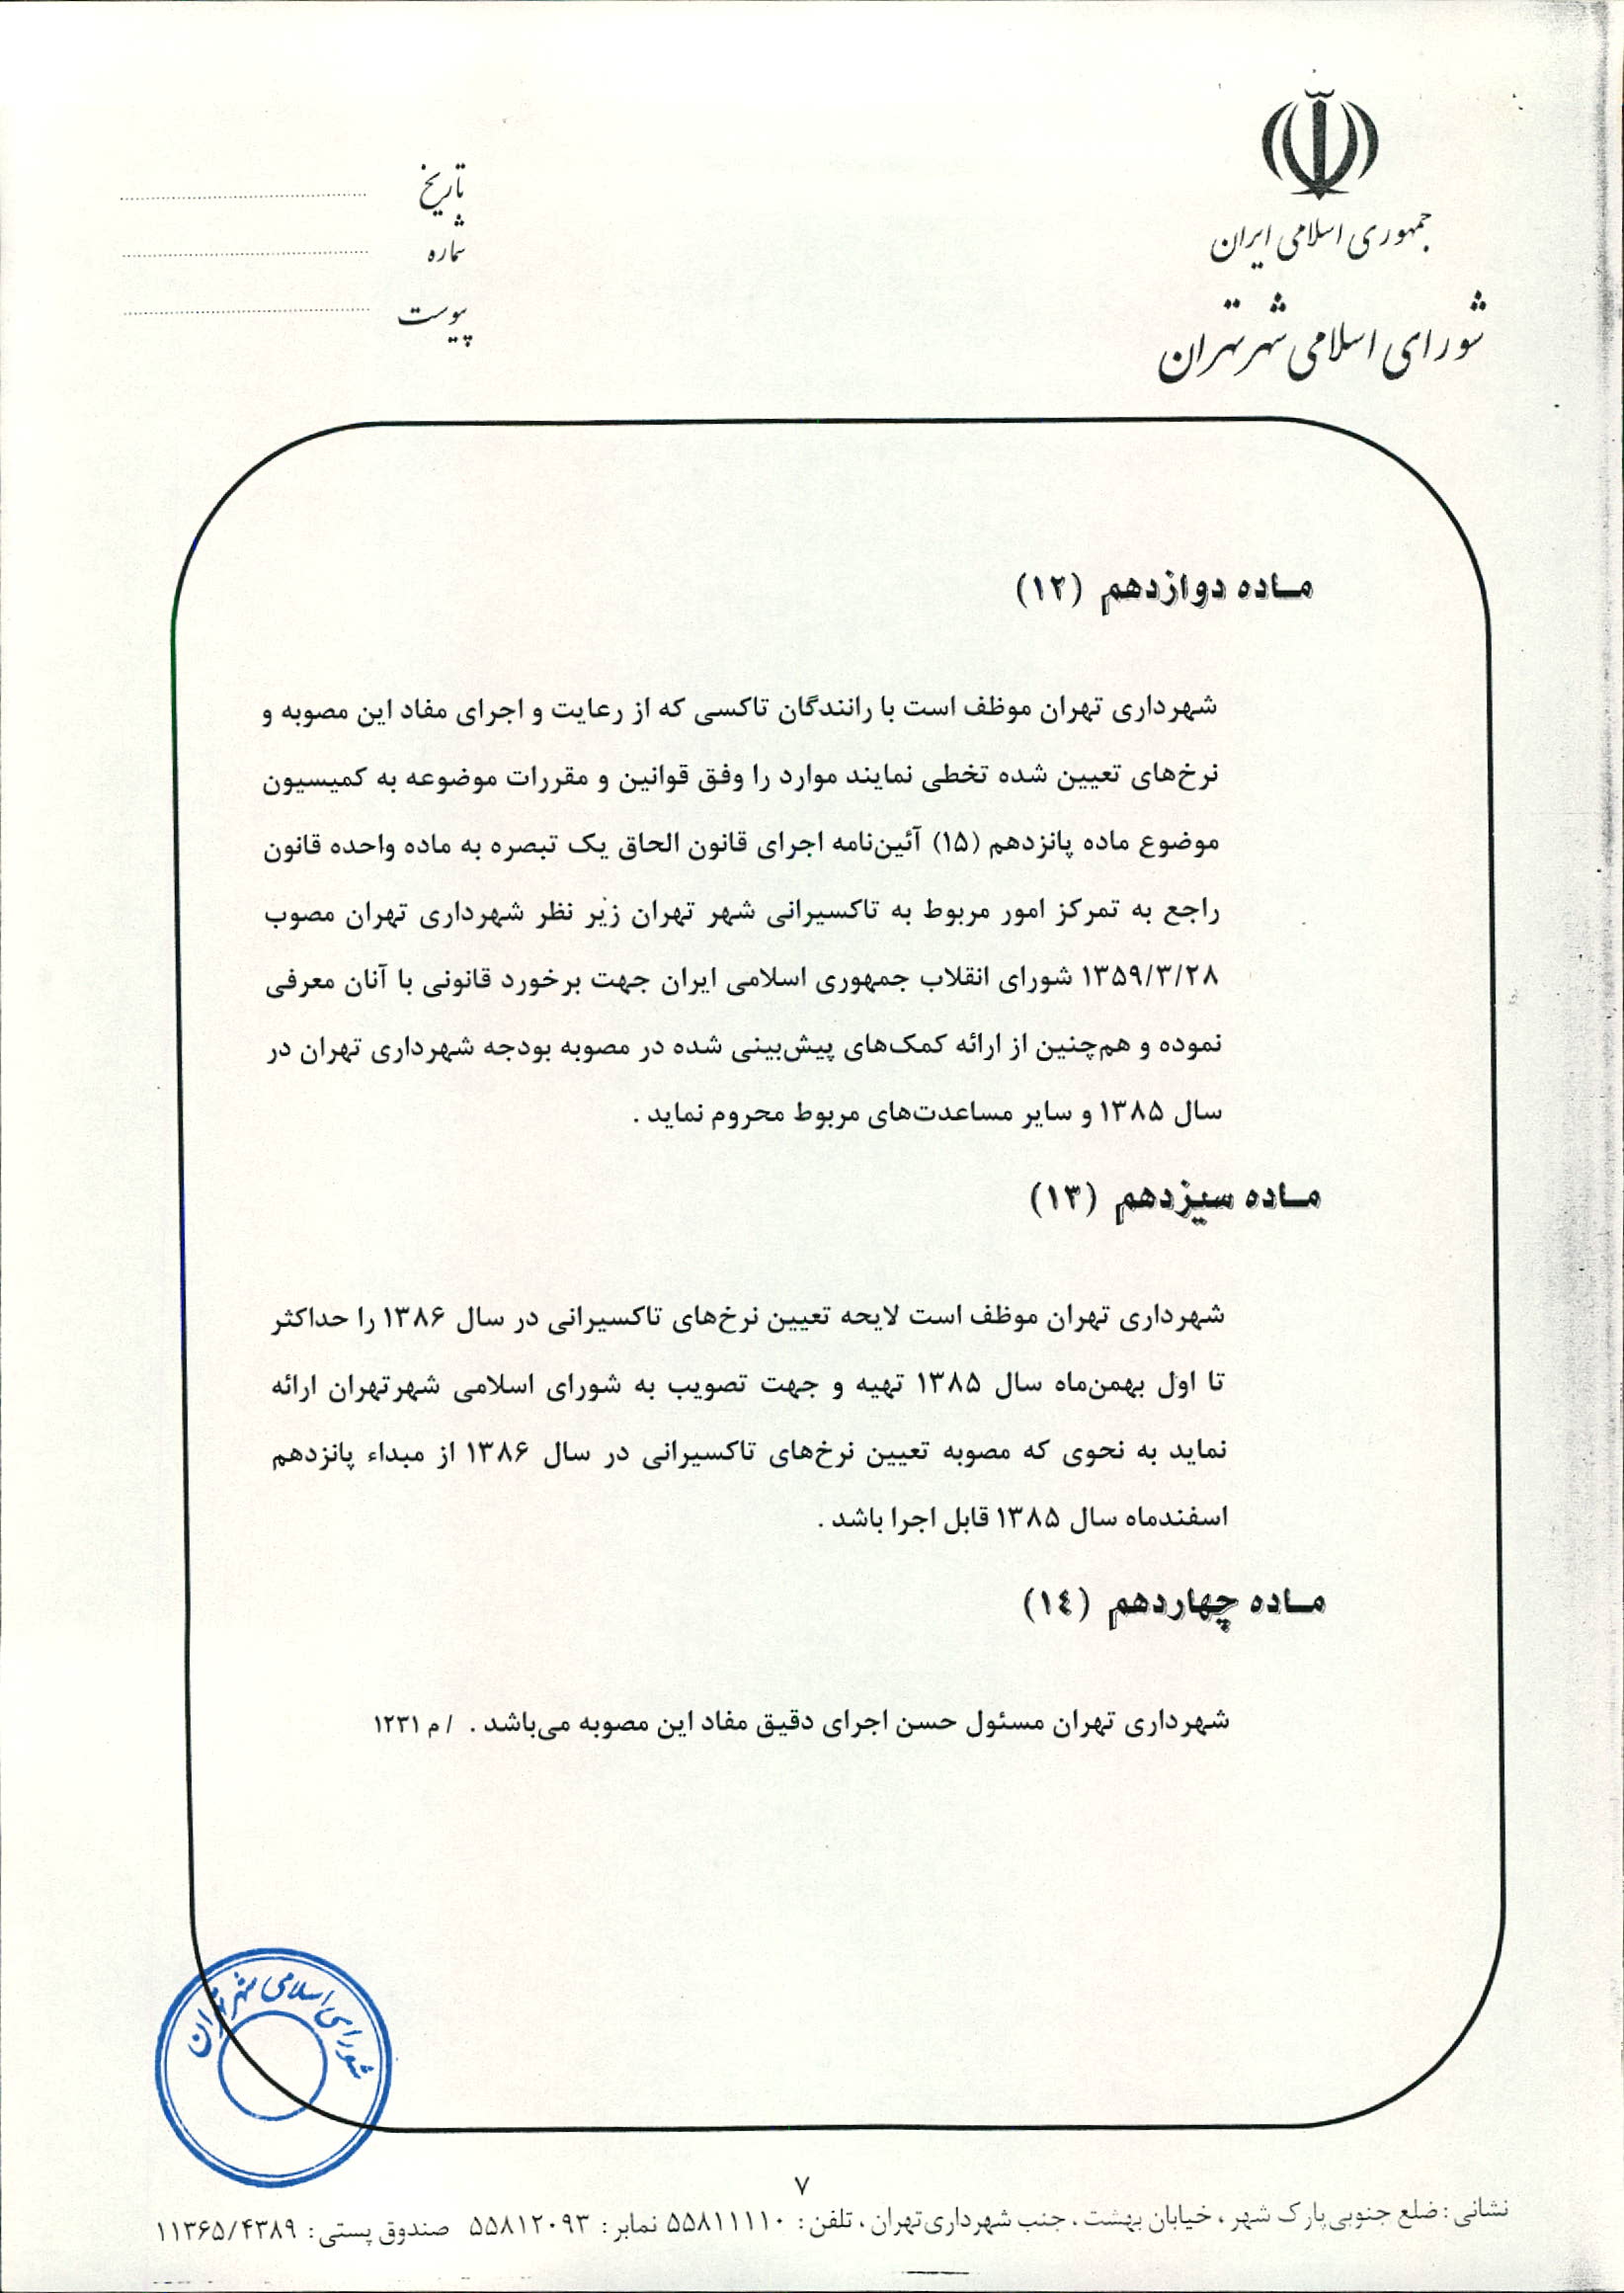 جمهوری اسلامی ایران
شورای اسلامی شهر تهران
تاریخ
شماره
پیوست
ماده دوازدهم (۱۲)
شهرداری تهران موظف است با رانندگان تاکسی که از رعایت و اجرای مفاد این مصوبه و
نرخ‌های تعیین شده تخطی نمایند موارد را وفق قوانین و مقررات موضوعه به کمیسیون
موضوع ماده پانزدهم (۱۵) آئین‌نامه اجرای قانون الحاق یک تبصره به ماده واحده قانون
راجع به تمرکز امور مربوط به تاکسیرانی شهر تهران زیر نظر شهرداری تهران مصوب
۱۳۵۹/۳/۲۸ شورای انقلاب جمهوری اسلامی ایران جهت برخورد قانونی با آنان معرفی
نموده و هم‌چنین از ارائه کمک‌های پیش‌بینی شده در مصوبه بودجه شهرداری تهران در
سال ۱۳۸۵ و سایر مساعدت‌های مربوط محروم نماید .
ماده سیزدهم (۱۳)
شهرداری تهران موظف است لایحه تعیین نرخ‌های تاکسیرانی در سال ۱۳۸۶ را حداکثر
تا اول بهمن‌ماه سال ۱۳۸۵ تهیه و جهت تصویب به شورای اسلامی شهرتهران ارائه
نماید به نحوی که مصوبه تعیین نرخ‌های تاکسیرانی در سال ۱۳۸۶ از مبداء پانزدهم
اسفندماه سال ۱۳۸۵ قابل اجرا باشد .
ماده چهاردهم (۱٤)
شهرداری تهران مسئول حسن اجرای دقیق مفاد این مصوبه می‌باشد . / م ۱۲۳۱
شورای اسلامی شهر تهران
۷
نشانی : ضلع جنوبی پارک شهر ، خیابان بهشت ، جنب شهرداری تهران ، تلفن : ۵۵۸۱۱۱۱۰ نمابر : ۵۵۸۱۲۰۹۳ صندوق پستی : ۱۱۳۶۵/۴۳۸۹